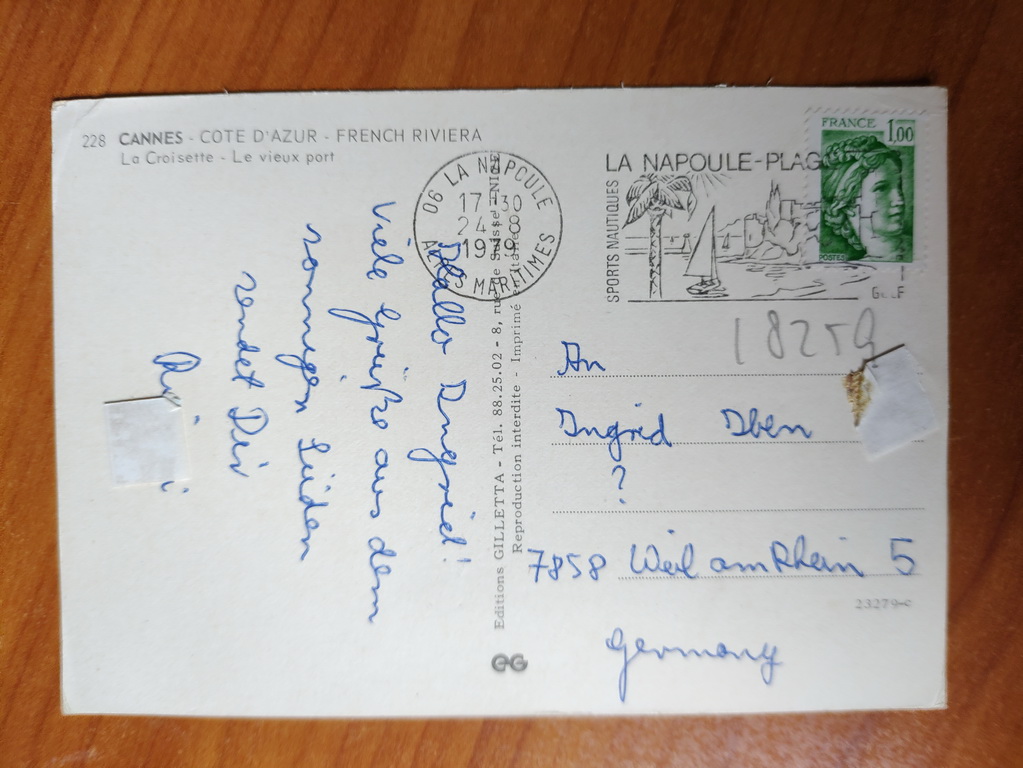 228 CANNES - COTE D'AZUR - FRENCH RIVIERA
La Croisette - Le vieux port
Hallo Ingrid!
Viele Grüße aus dem
sonnigen Süden
sendet Dir
Editions GILLETTA - Tél. 88.25.02 - 8, rue de Suisse - NICE
Reproduction interdite - Imprimé en Italie
06 LA NAPOULE
17-30
24-8
1979
ALPES MARITIMES
LA NAPOULE-PLAGE
SPORTS NAUTIQUES
GOLF
FRANCE 1,00
POSTES
18259
An
Ingrid Iben
?
7858 Weil am Rhein 5
23279-c
Germany
EG